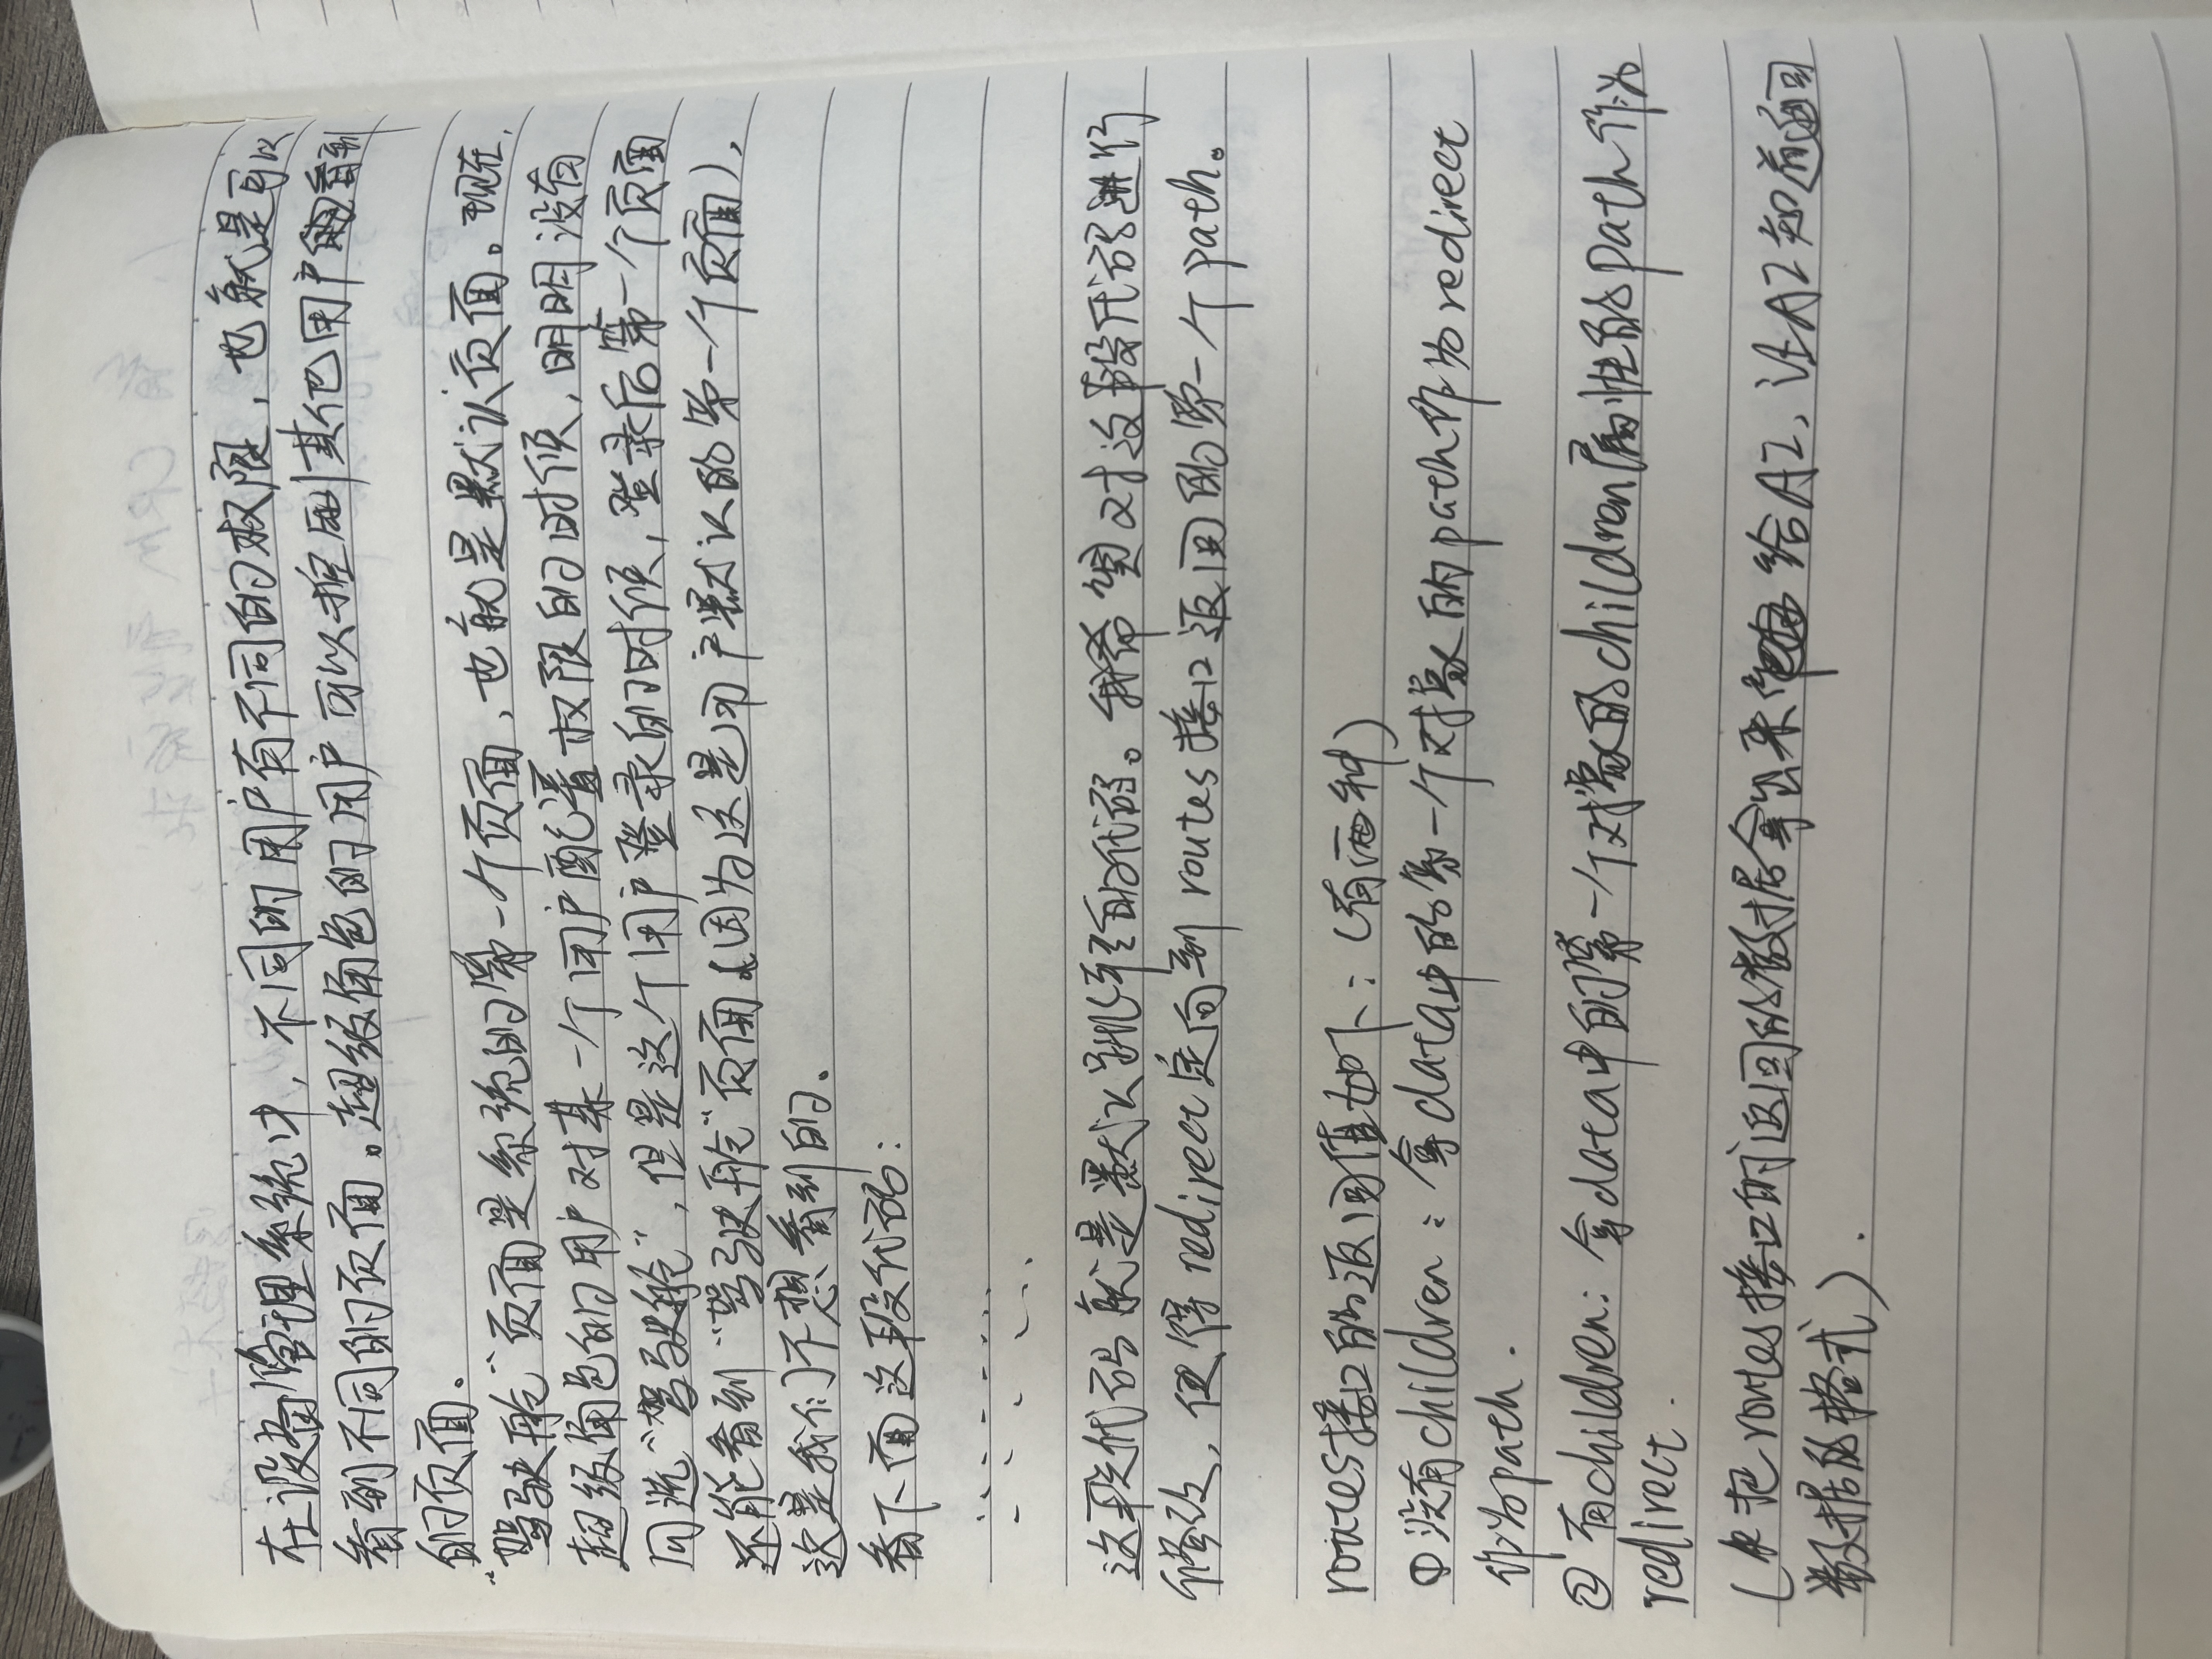 在设备管理系统中，不同的用户有不同的权限，也就是可以
看到不同的页面。超级角色的用户可以控制其他用户能看到
的页面。
“驾驶舱”页面是系统的第一个页面，也就是默认页面。现在，
超级角色的用户对某一个用户配置权限的时候，明明没有
勾选“驾驶舱”，但是这个用户登录的时候，登录后第一个页面
还能看到“驾驶舱”页面（因为这是用户默认的第一个页面），
这是我们不想看到的。
看下面这段代码：
这段代码就是默认跳转的代码。我希望对这段代码进行
修改，使得redirect定向到routes接口返回的第一个path。
routes接口的返回值如下：（有两种）
① 没有children：拿data中的第一个对象的path作为redirect
作为path.
② 有children：拿data中的第一个对象的children属性的path作为
redirect.
（把routes接口的返回的数据拿出来给AI，让AI知道返回
数据的格式）.